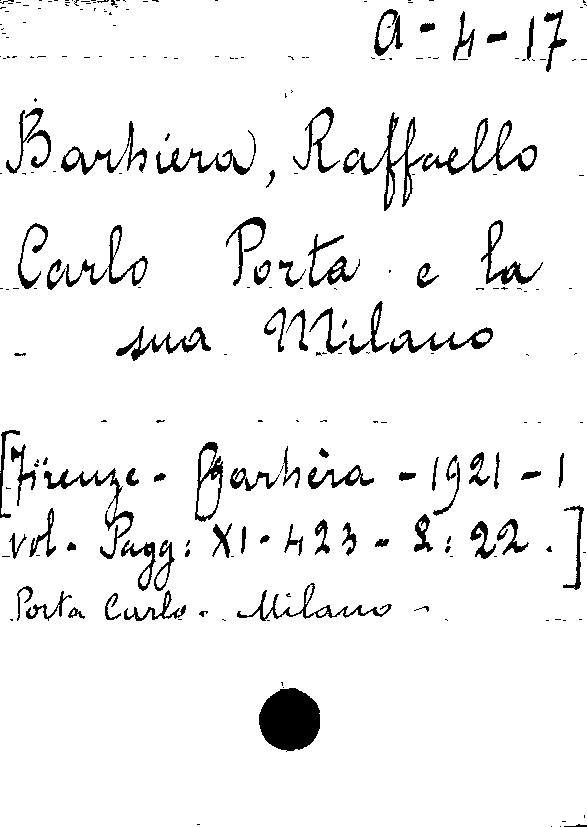 a-4-17
Barbiera, Raffaello
Carlo Porta e la
sua Milano
[Firenze - Barbèra - 1921 - 1
vol. Pagg: XI-423 - L: 22.]
Porta Carlo. Milano -